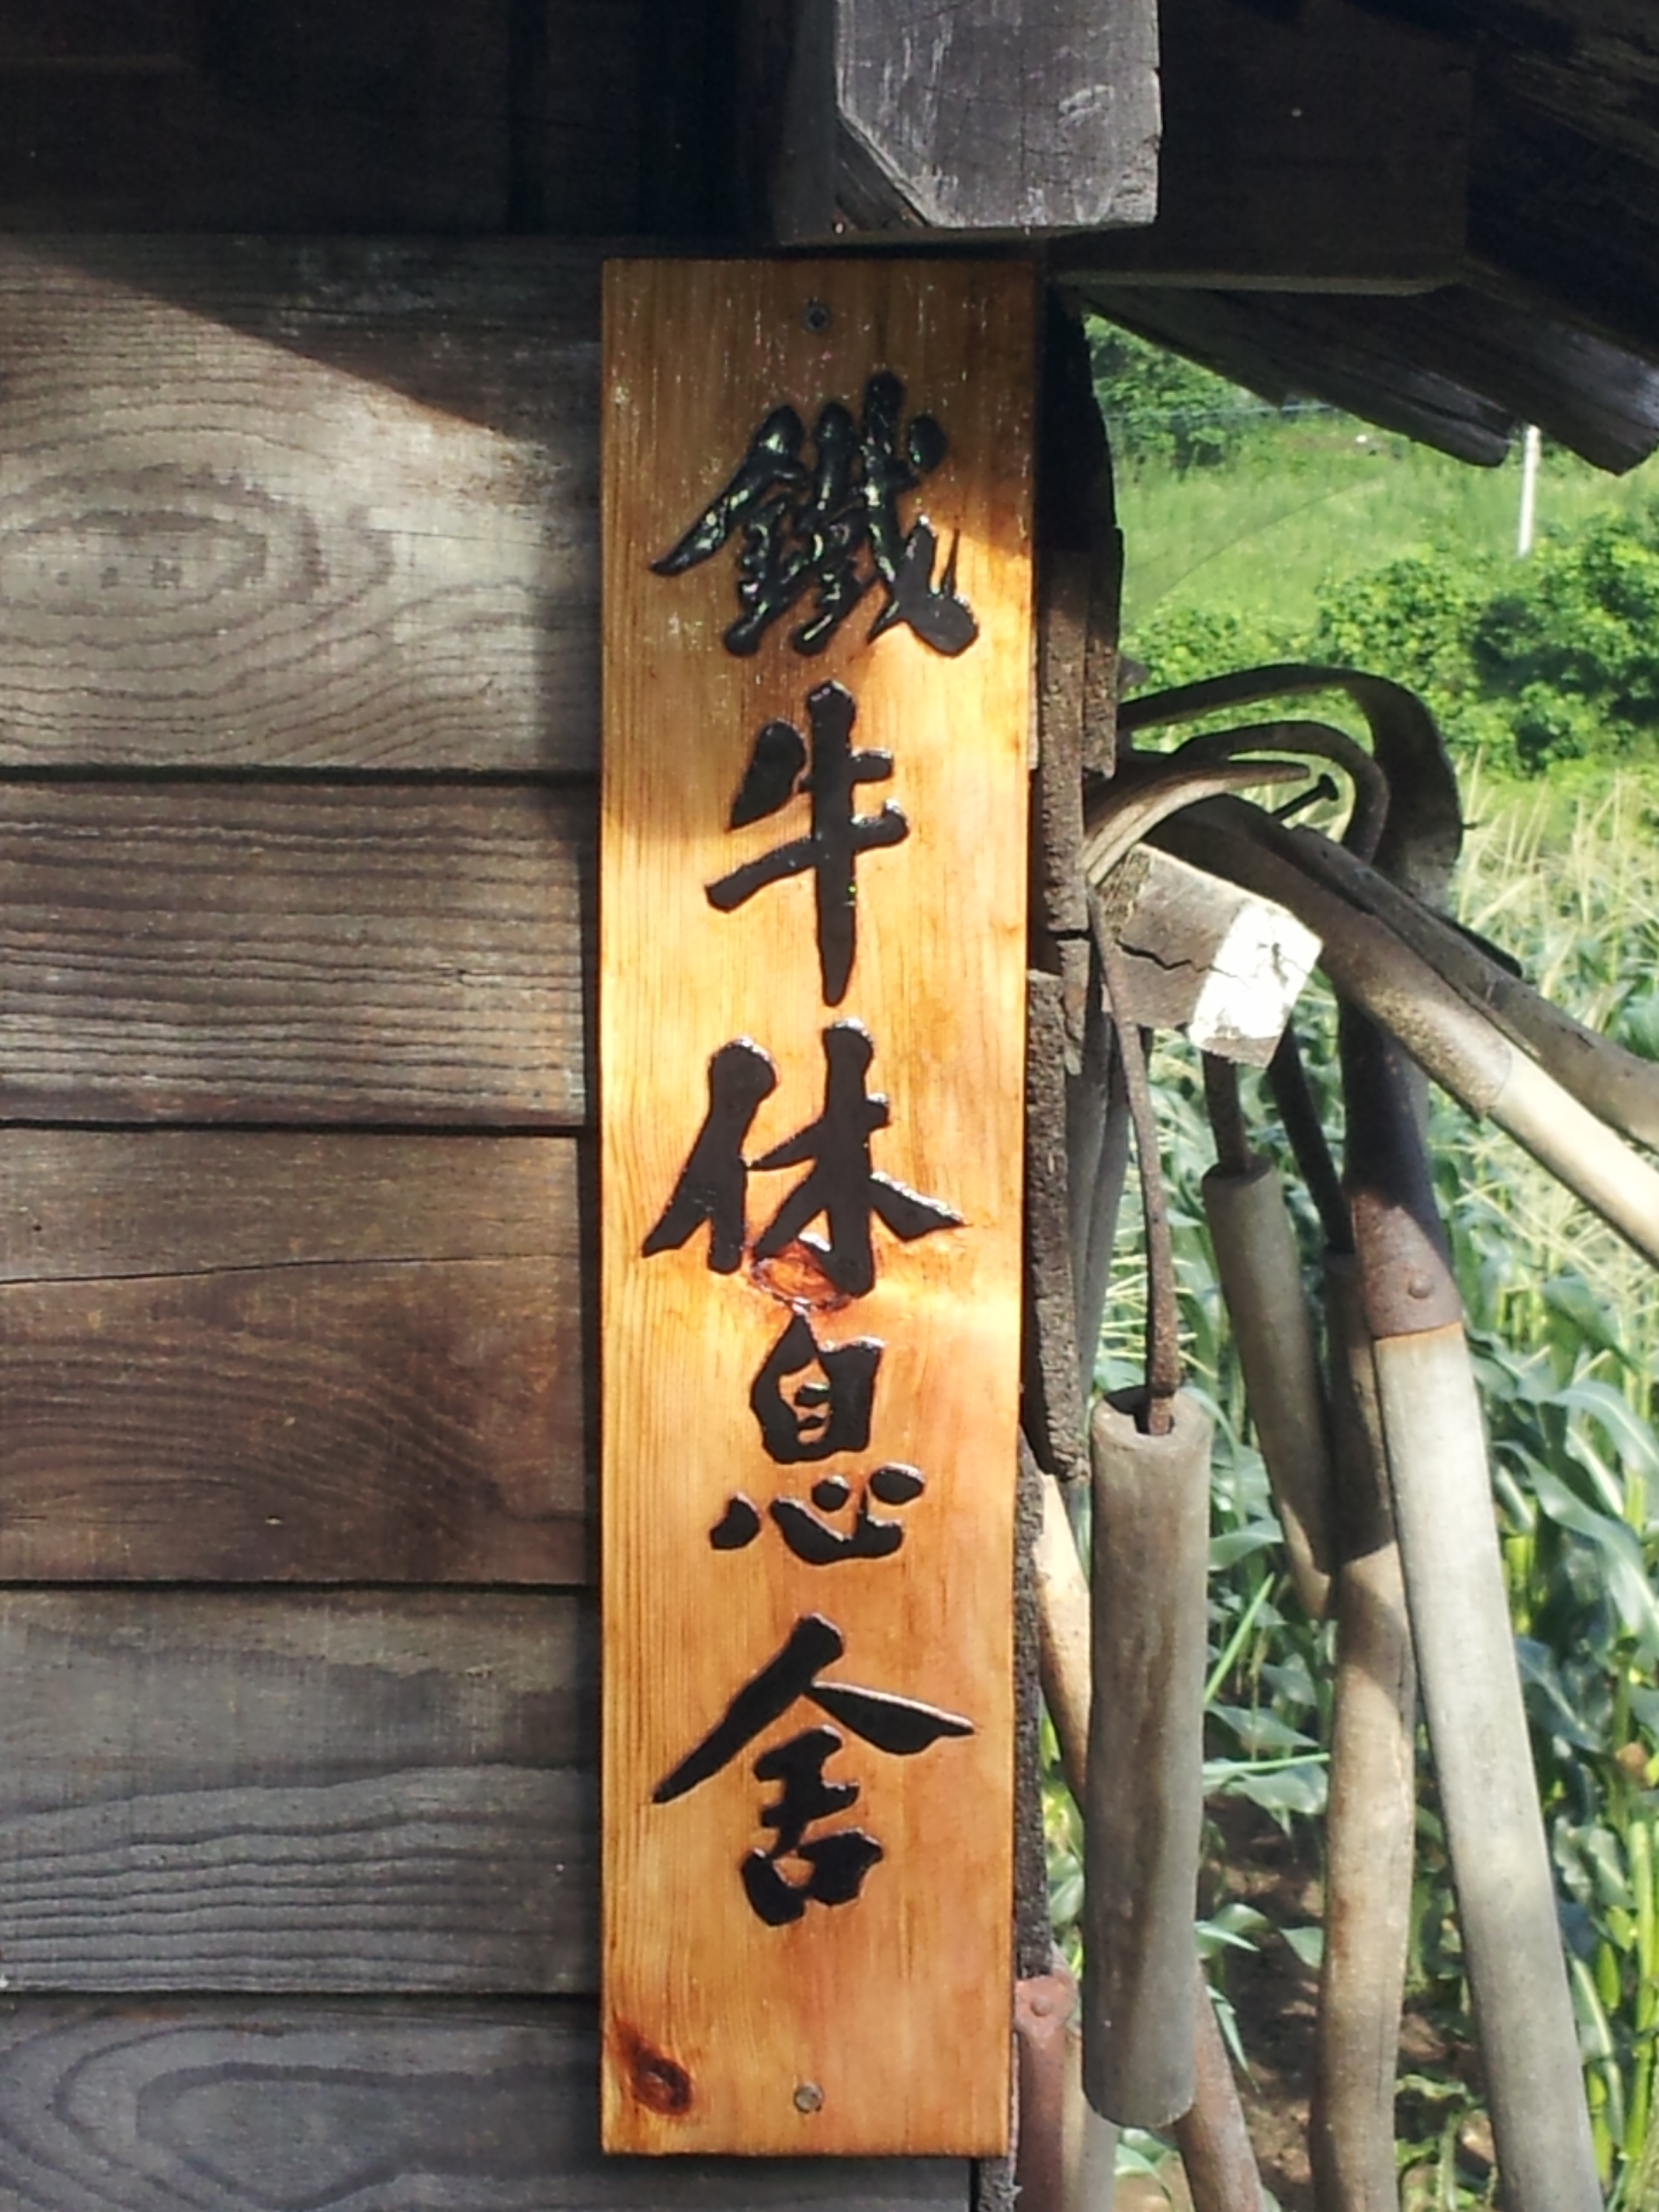 鐵牛休息舍